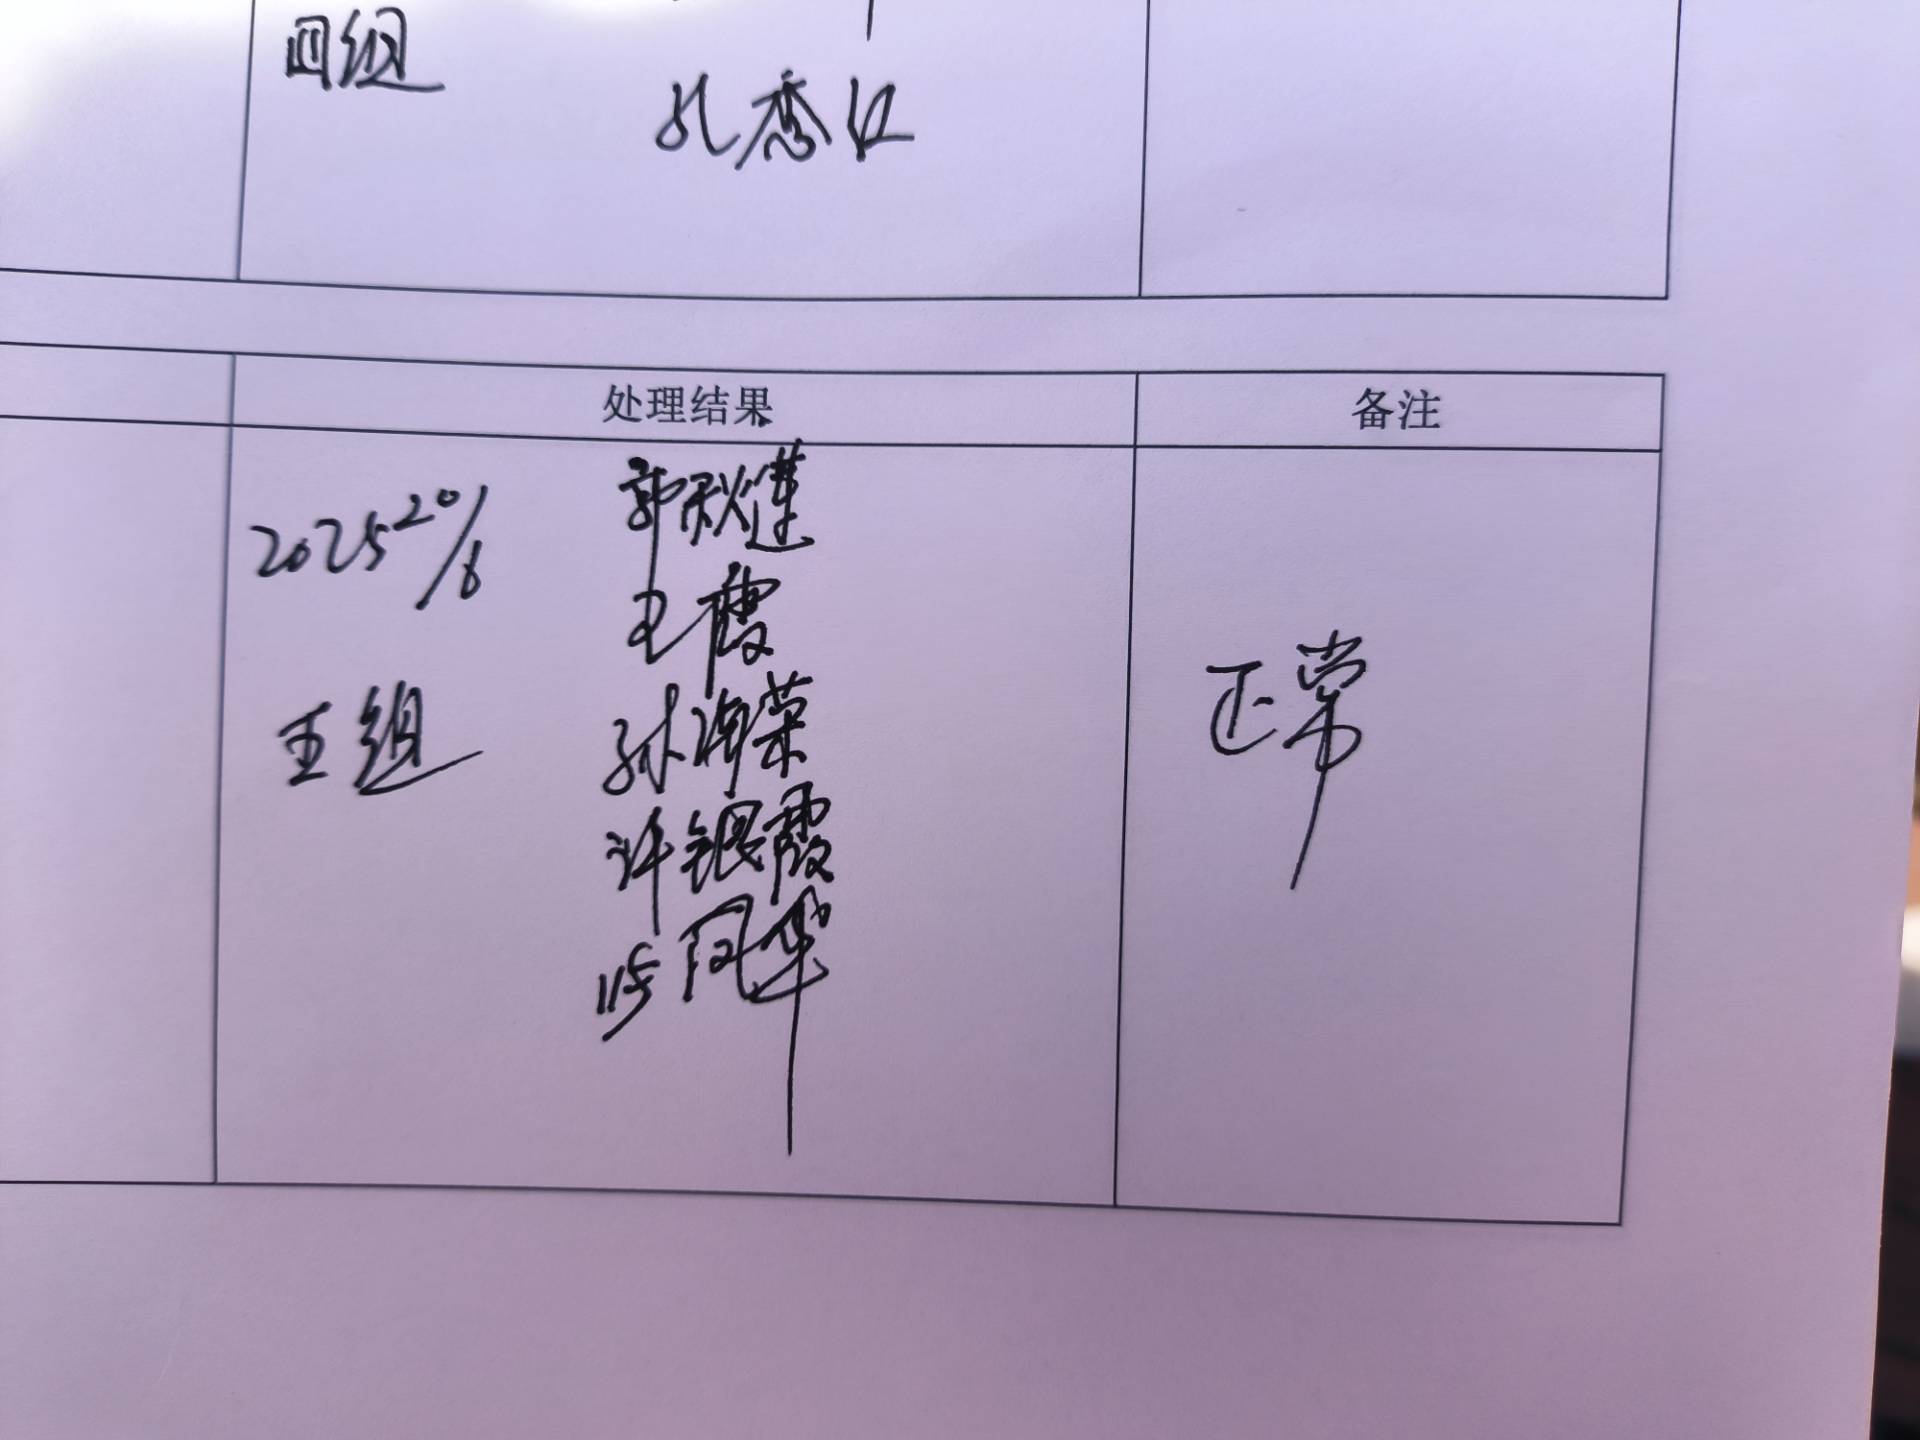 四组
孔秀红
处理结果
备注
2025 20/6
郭秋莲
王霞
王组
孙海荣
正常
许银霞
凤华